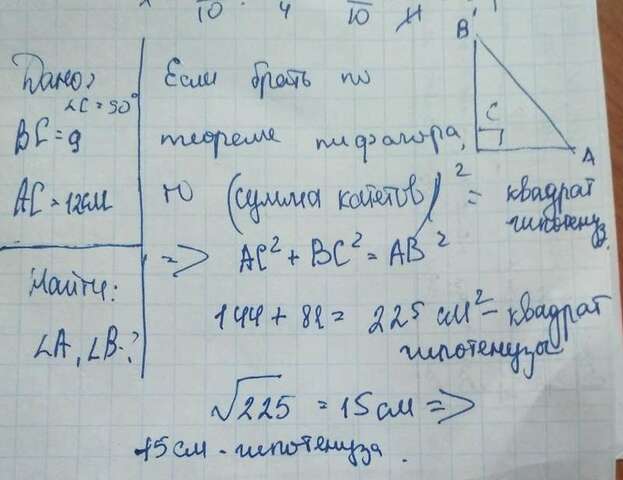 10 4 10 И
Дано:
∠C = 90°
BC = 9
AC = 12см
Найти:
∠A, ∠B-?
Если брать по
теореме пифагора,
то (сумма катетов)² = квадрат
гипотенуз.
=> AC² + BC² = AB²
144 + 81 = 225 см² - квадрат
гипотенузы
√225 = 15см =>
15см - гипотенуза.
B
C
A